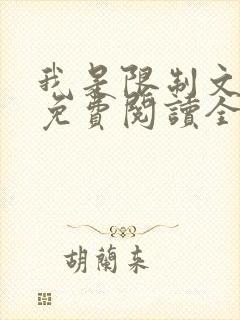 我是限制文
免費閱讀全
胡蘭來